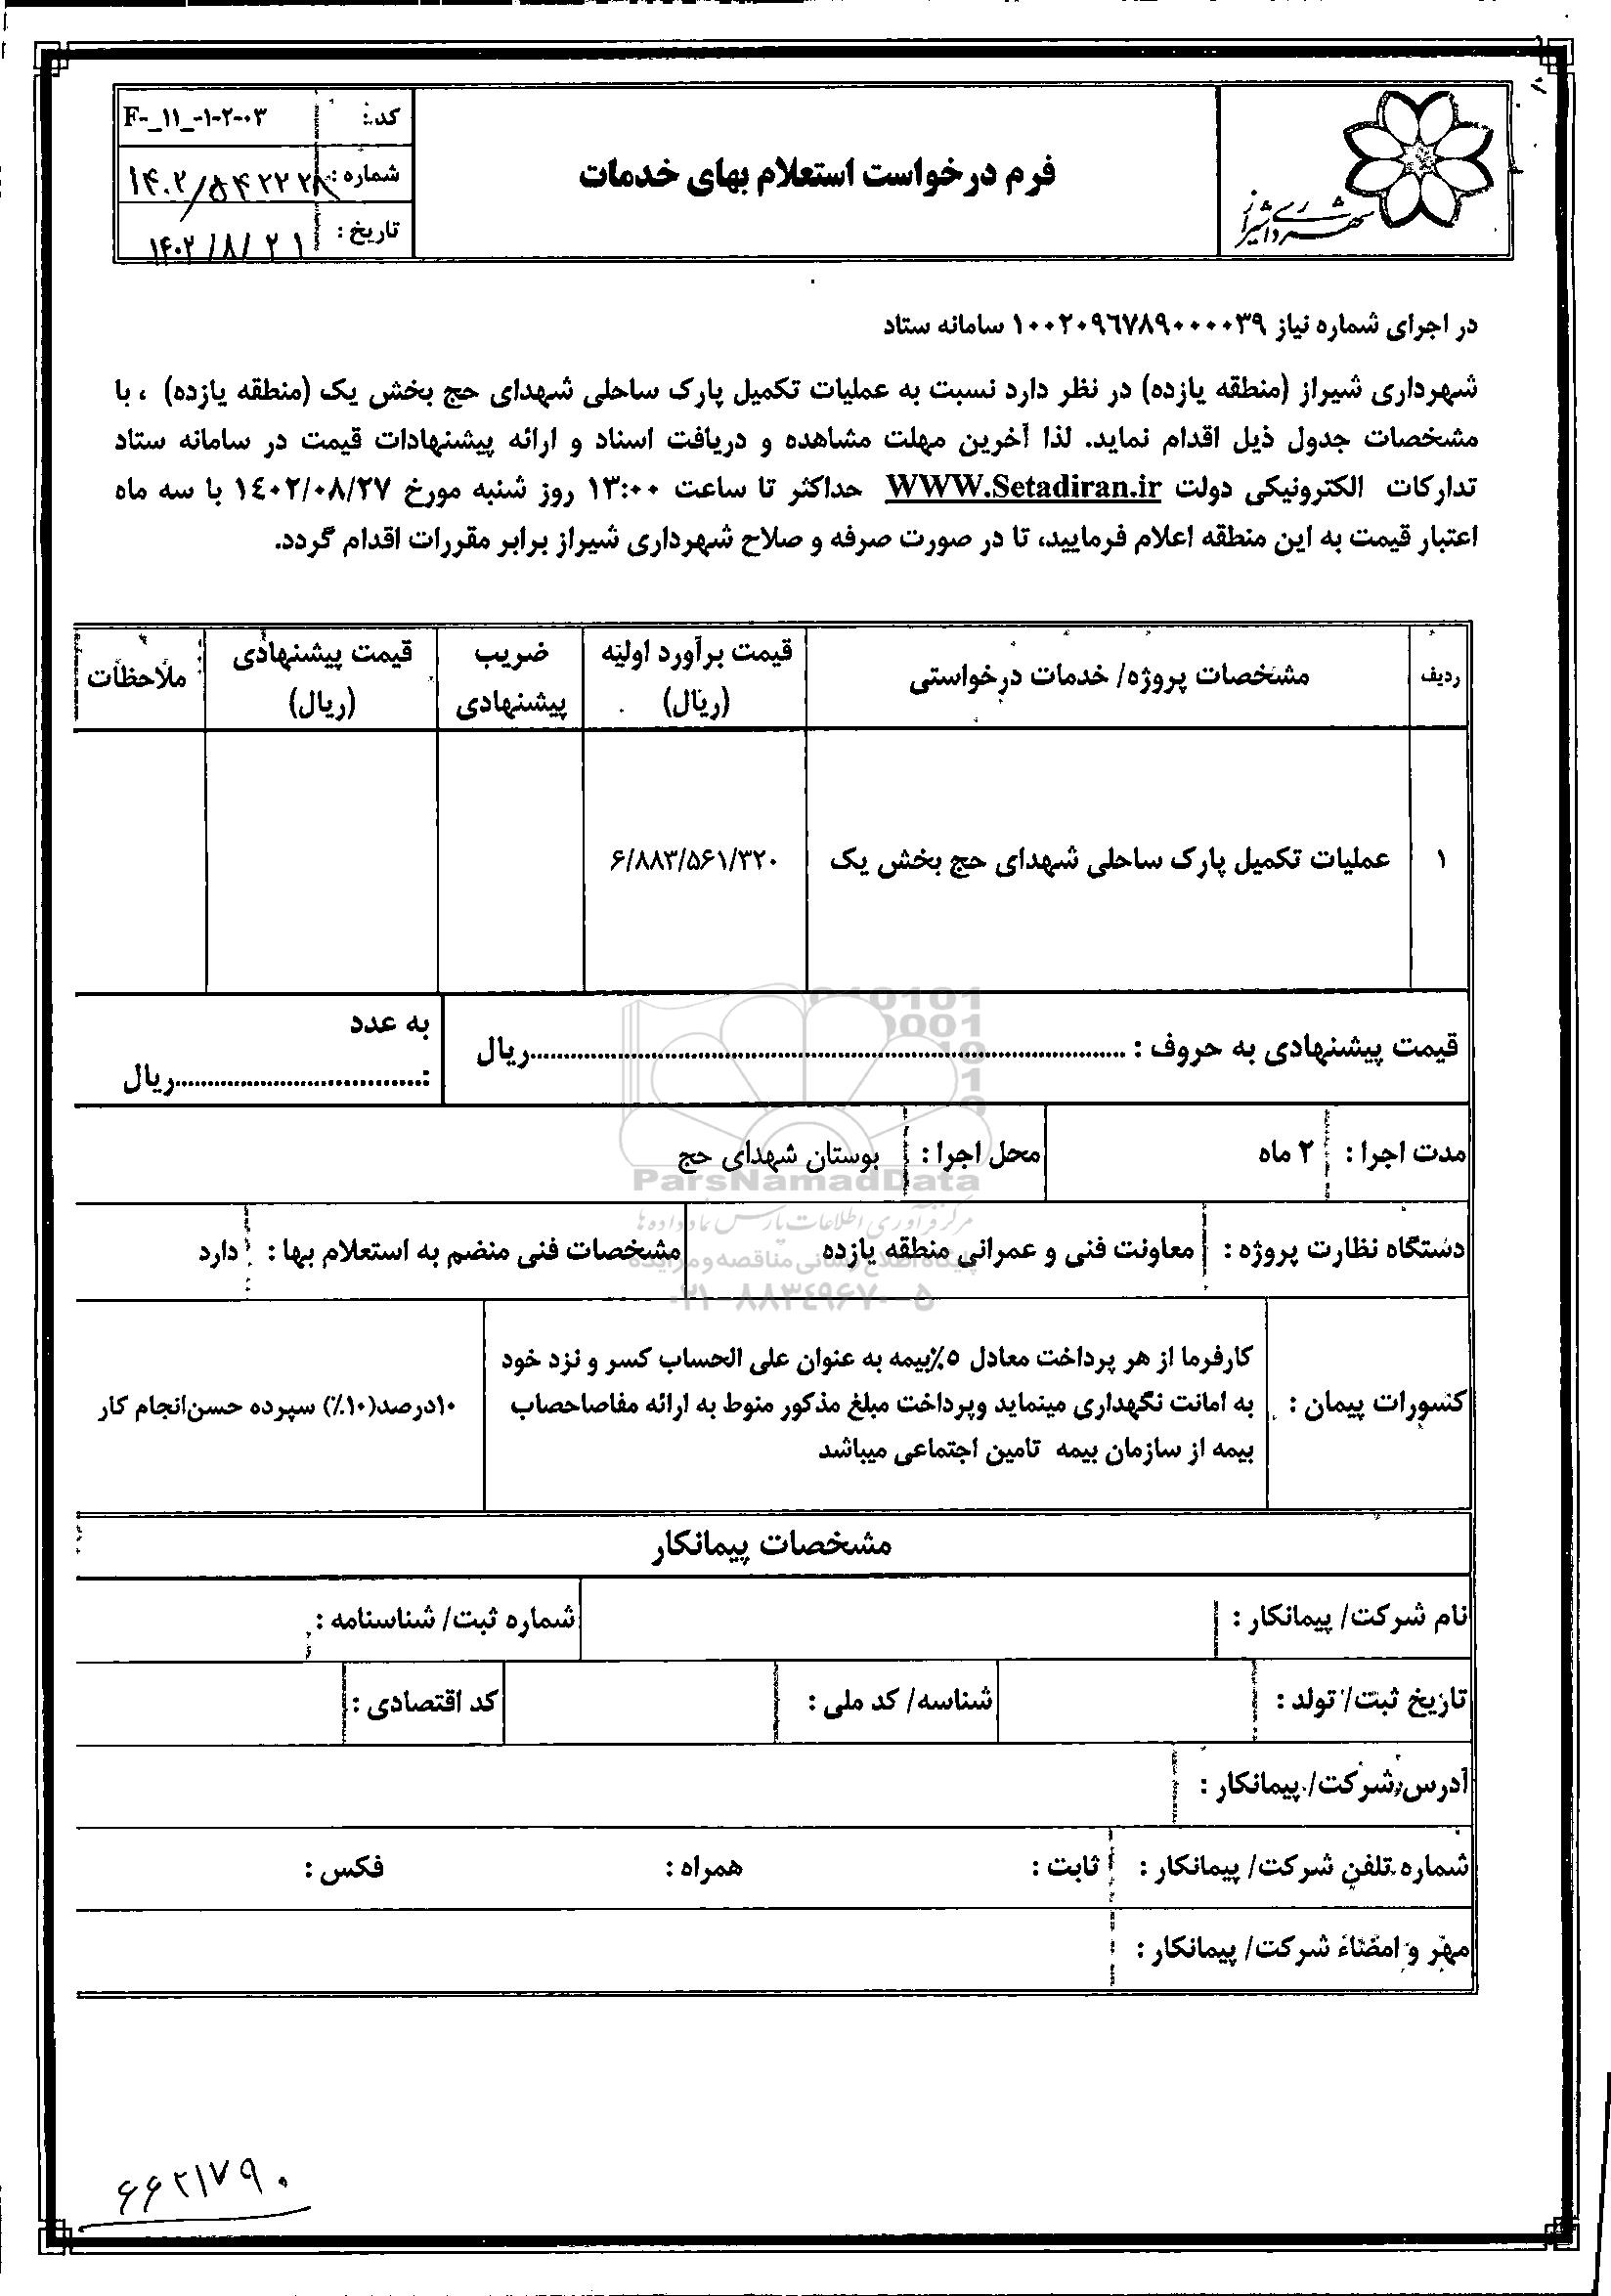 شهرداری شیراز
فرم درخواست استعلام بهای خدمات
کد: F-_۱۱_-۱-۲-۰۳
شماره: ۱۴۰۲/۵۴۲۲۲۸
تاریخ: ۱۴۰۲/۸/۲۱
در اجرای شماره نیاز ۱۰۰۲۰۹۶۷۸۹۰۰۰۰۳۹ سامانه ستاد
شهرداری شیراز (منطقه یازده) در نظر دارد نسبت به عملیات تکمیل پارک ساحلی شهدای حج بخش یک (منطقه یازده) ، با
مشخصات جدول ذیل اقدام نماید. لذا آخرین مهلت مشاهده و دریافت اسناد و ارائه پیشنهادات قیمت در سامانه ستاد
تدارکات الکترونیکی دولت WWW.Setadiran.ir حداکثر تا ساعت ۱۳:۰۰ روز شنبه مورخ ۱٤۰۲/۰۸/۲۷ با سه ماه
اعتبار قیمت به این منطقه اعلام فرمایید، تا در صورت صرفه و صلاح شهرداری شیراز برابر مقررات اقدام گردد.
ردیف مشخصات پروژه/ خدمات درخواستی قیمت برآورد اولیه (ریال) ضریب پیشنهادی قیمت پیشنهادی (ریال) ملاحظات
۱ عملیات تکمیل پارک ساحلی شهدای حج بخش یک ۶/۸۸۳/۵۶۱/۳۲۰
قیمت پیشنهادی به حروف : ..........ریال
به عدد
:..........ریال
مدت اجرا : ۲ ماه محل اجرا : بوستان شهدای حج
ParsNamadData
مرکز فرآوری اطلاعات پارس نماد داده ها
دستگاه نظارت پروژه : معاونت فنی و عمرانی منطقه یازده مشخصات فنی منضم به استعلام بها : دارد
پایگاه اطلاع رسانی مناقصه و مزایده
۰۲۱-۸۸۳٤۹۶۷۰-۵
کسورات پیمان :
کارفرما از هر پرداخت معادل ۵٪بیمه به عنوان علی الحساب کسر و نزد خود
به امانت نگهداری مینماید وپرداخت مبلغ مذکور منوط به ارائه مفاصاحصاب
بیمه از سازمان بیمه تامین اجتماعی میباشد
۱۰درصد(۱۰٪) سپرده حسن‌انجام کار
مشخصات پیمانکار
نام شرکت/ پیمانکار : شماره ثبت/ شناسنامه :
تاریخ ثبت/ تولد : شناسه/ کد ملی : کد اقتصادی :
آدرس شرکت/ پیمانکار :
شماره تلفن شرکت/ پیمانکار : ثابت : همراه : فکس :
مهر و امضاء شرکت/ پیمانکار :
۶۶۲۱۷۹۰